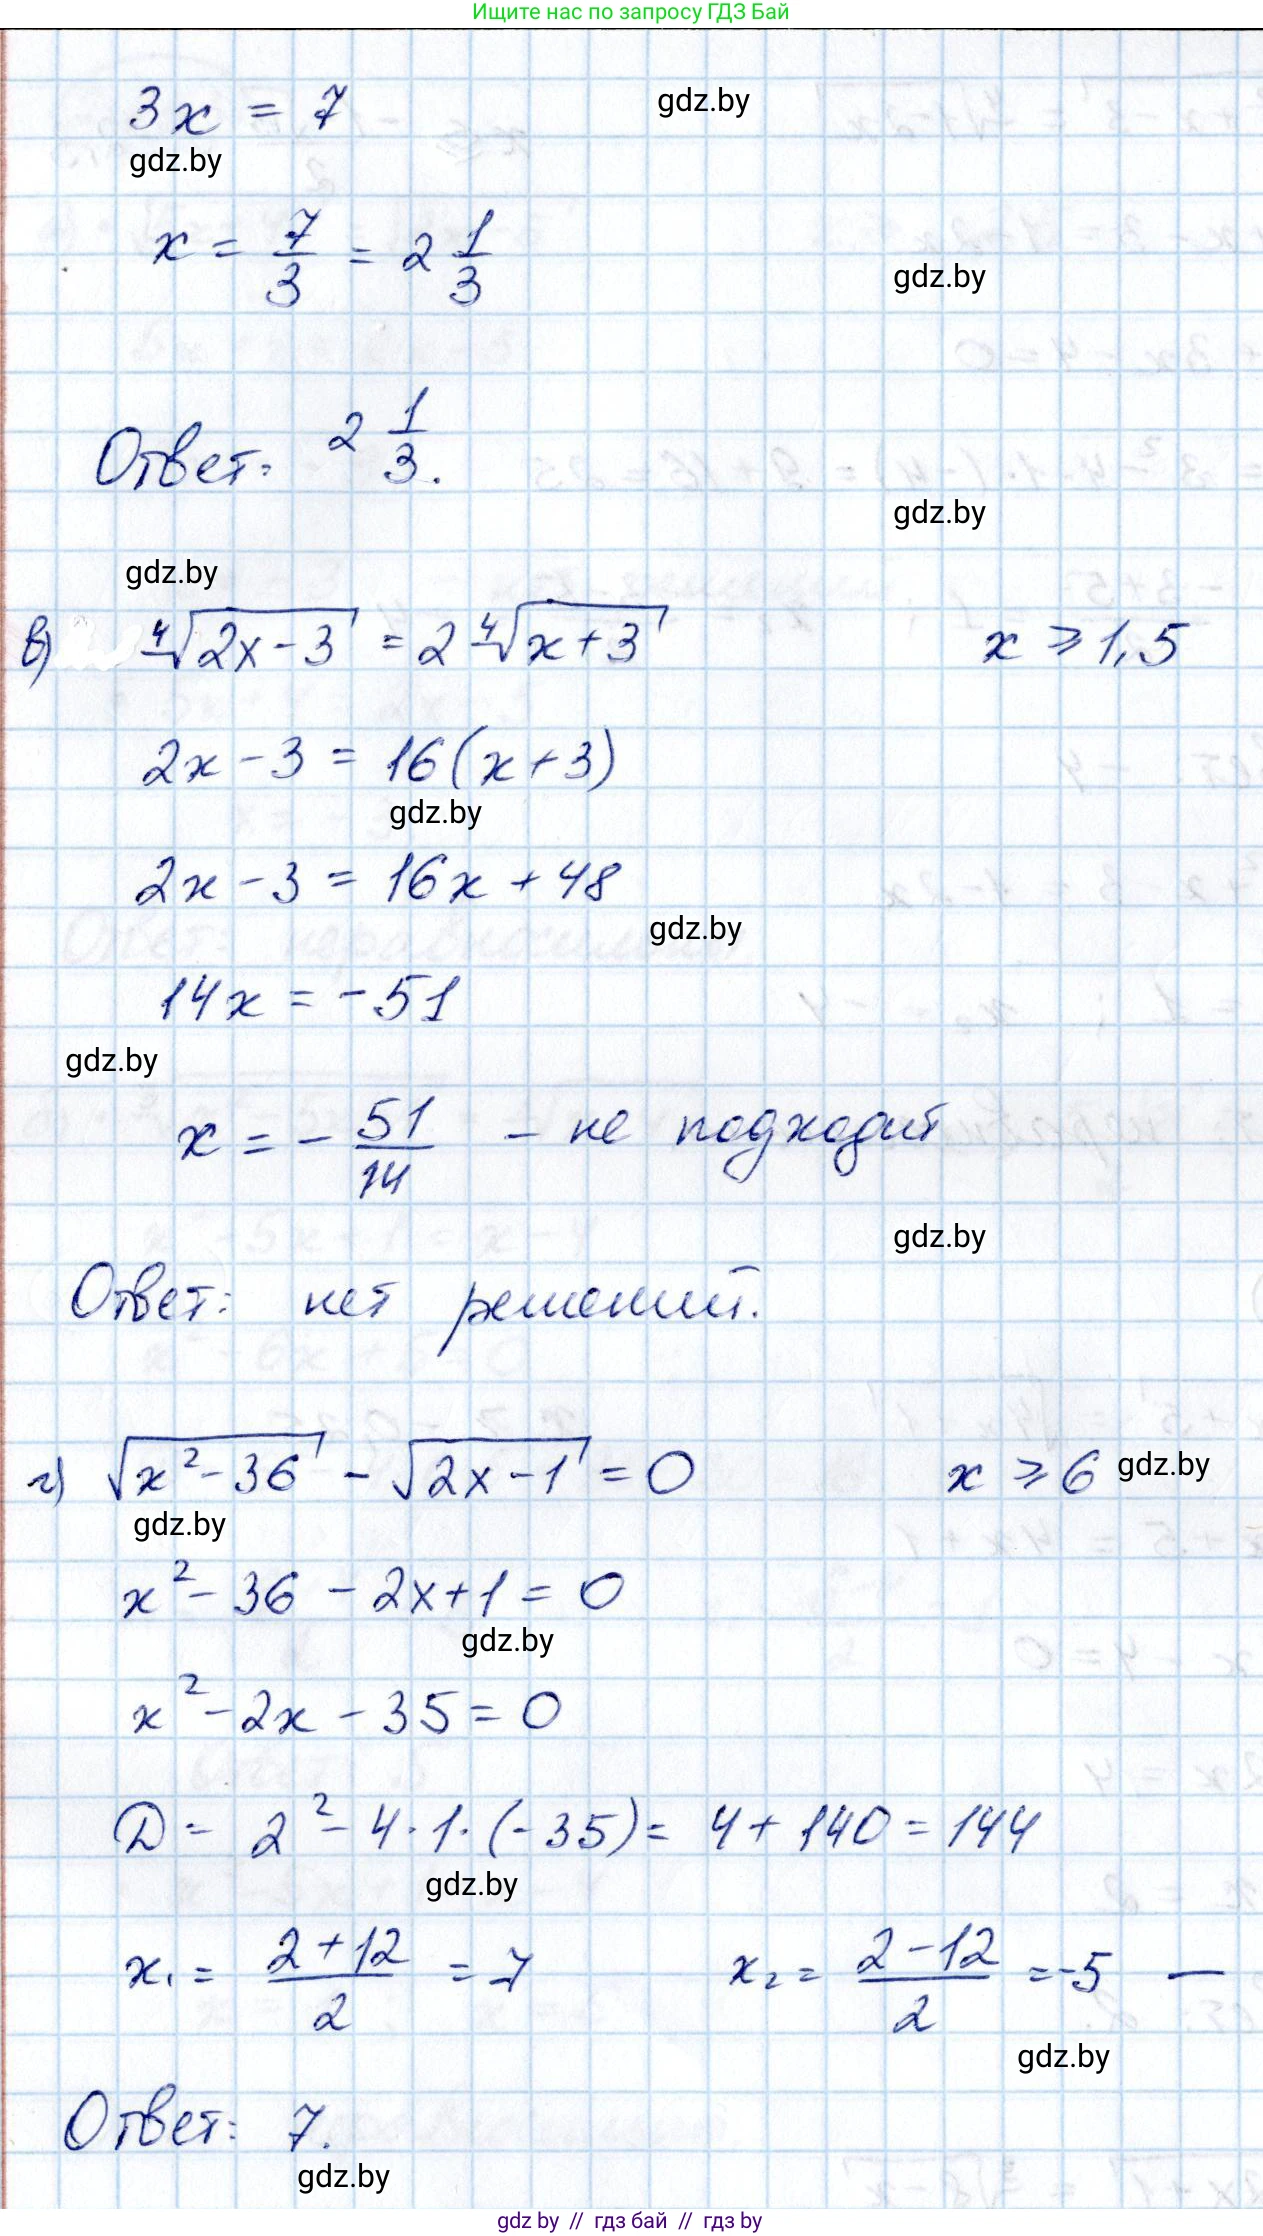 Ищите нас по запросу ГДЗ Бай
3x = 7
gdz.by
gdz.by
x = 7/3 = 2 1/3
gdz.by
Ответ: 2 1/3.
gdz.by
gdz.by
в) ⁴√(2x-3) = 2 ⁴√(x+3)   x ⩾ 1,5
2x - 3 = 16(x+3)
gdz.by
2x - 3 = 16x + 48
gdz.by
14x = -51
gdz.by
x = - 51/14 - не подходит
gdz.by
Ответ: нет решений.
г) √(x²-36) - √(2x-1) = 0   x ⩾ 6
gdz.by
gdz.by
x² - 36 - 2x + 1 = 0
gdz.by
x² - 2x - 35 = 0
D = 2² - 4·1·(-35) = 4 + 140 = 144
gdz.by
x₁ = (2+12)/2 = 7   x₂ = (2-12)/2 = -5 —
gdz.by
Ответ: 7.
gdz.by
gdz by // гдз бай // гдз by